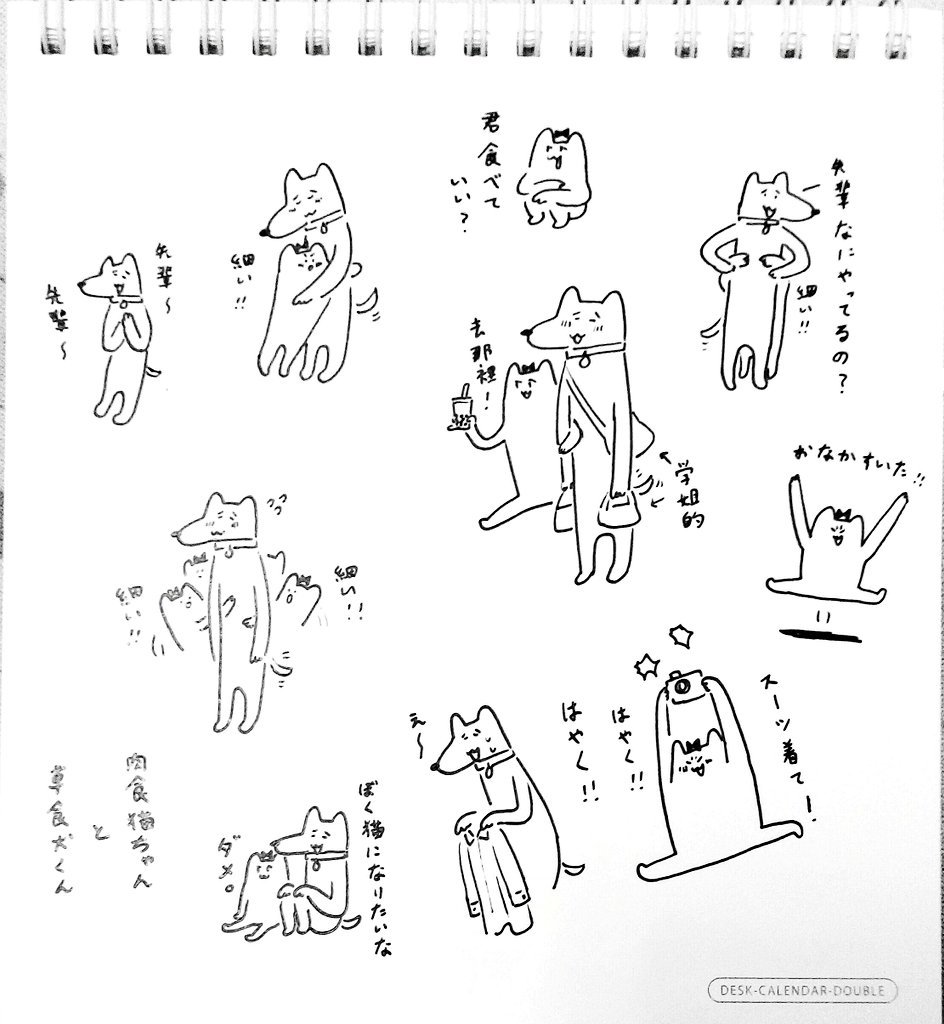 君食べて
いい？
先輩なにやってるの？
細い!!
先輩〜
先輩〜
細い!!
去那裡！
学姐的
おなかすいた!!
細い!!
細い!!
スーツ着てー！
はやく!!
はやく!!
え〜
ぼく猫になりたいな
ダメ。
肉食猫ちゃん
と
草食犬くん
DESK-CALENDAR-DOUBLE